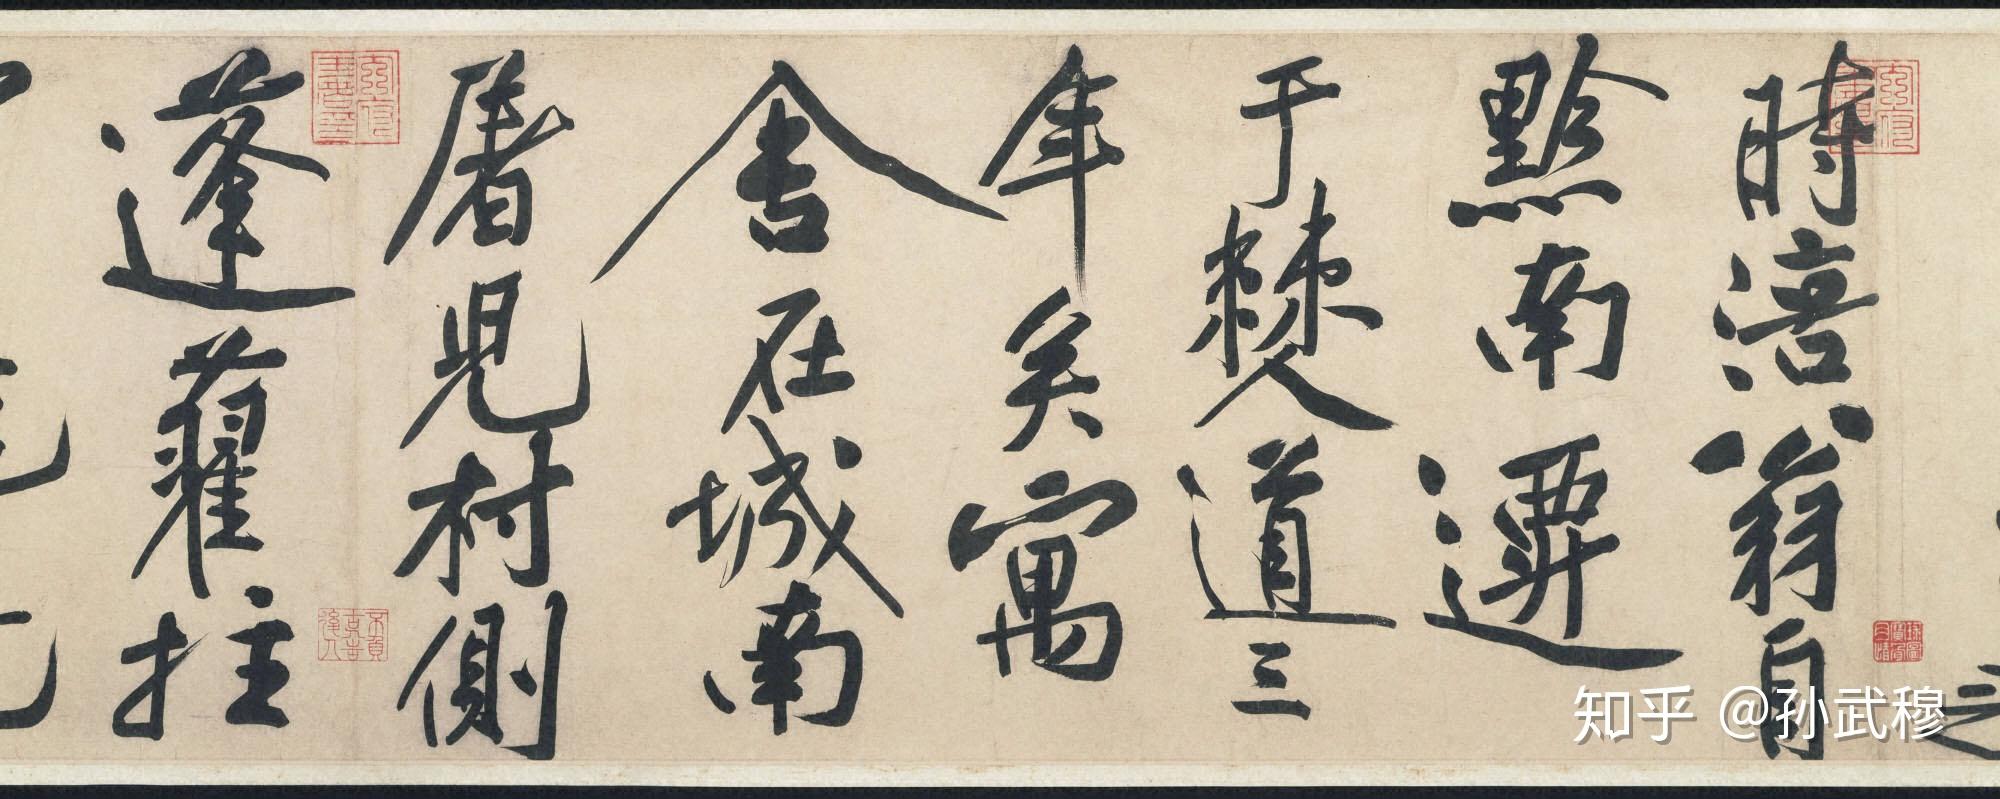 時涪翁自
黔南遷
于僰道三
年矣寓
舍在城南
屠兒村側
蓬藋拄
知乎 @孙武穆